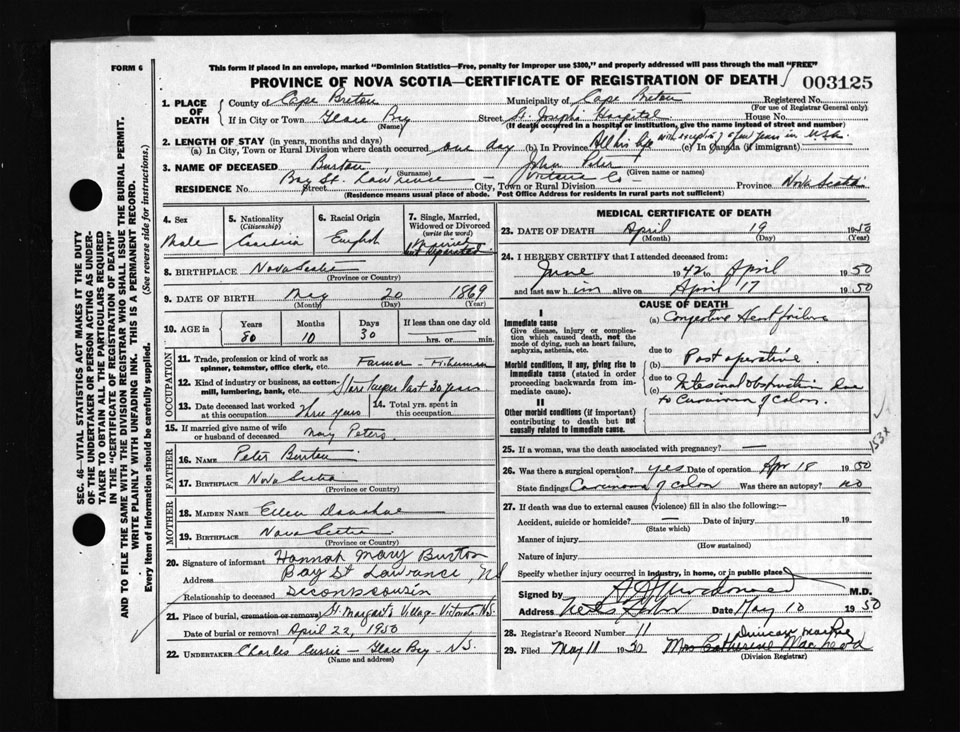 This form if placed in an envelope, marked "Dominion Statistics—Free, penalty for improper use $300," and properly addressed will pass through the mail "FREE"
FORM 6
PROVINCE OF NOVA SCOTIA—CERTIFICATE OF REGISTRATION OF DEATH 003125
SEC. 46 VITAL STATISTICS ACT MAKES IT THE DUTY
OF THE UNDERTAKER OR PERSON ACTING AS UNDER-
TAKER TO OBTAIN ALL THE PARTICULARS REQUIRED
IN THE "CERTIFICATE OF REGISTRATION OF DEATH"
AND TO FILE THE SAME WITH THE DIVISION REGISTRAR WHO SHALL ISSUE THE BURIAL PERMIT.
WRITE PLAINLY WITH UNFADING INK. THIS IS A PERMANENT RECORD.
Every item of information should be carefully supplied. (See reverse side for instructions.)
1. PLACE OF DEATH
County of Cape Breton Municipality of Cape Breton Registered No.
(For use of Registrar General only)
If in City or Town Glace Bay Street St. Josephs Hospital House No.
(Name) (If death occurred in a hospital or institution, give the name instead of street and number)
2. LENGTH OF STAY (in years, months and days)
(a) In City, Town or Rural Division where death occurred one day (b) In Province All his life with exception of few years in U.S.A. (c) In Canada (if immigrant)
3. NAME OF DECEASED Burton John Peter
(Surname) (Given name or names)
RESIDENCE No. Street Bay St. Lawrence City, Town or Rural Division Victoria Co Province Nova Scotia
(Residence means usual place of abode. Post Office Address for residents in rural parts not sufficient)
4. Sex
Male
5. Nationality
(Citizenship)
Canadian
6. Racial Origin
English
7. Single, Married,
Widowed or Divorced
(write the word)
Married
but separated
8. BIRTHPLACE Nova Scotia
(Province or Country)
9. DATE OF BIRTH May 20 1869
(Month) (Day) (Year)
10. AGE in Years Months Days If less than one day
80 10 30 hrs. or min.
OCCUPATION
11. Trade, profession or kind of work as
spinner, teamster, office clerk, etc. Farmer - Fisherman
12. Kind of industry or business, as cotton-
mill, lumbering, bank, etc. Store keeper last 20 years
13. Date deceased last worked
at this occupation three years
14. Total yrs. spent in
this occupation
15. If married give name of wife
or husband of deceased May Peters
FATHER
16. NAME Peter Burton
17. BIRTHPLACE Nova Scotia
(Province or Country)
MOTHER
18. MAIDEN NAME Ellen Donahue
19. BIRTHPLACE Nova Scotia
(Province or Country)
20. Signature of informant Hannah Mary Burton
Address Bay St Lawrance, NS
Relationship to deceased second cousin
21. Place of burial, cremation or removal St. Margarets Village - Victoria - N.S.
Date of burial or removal April 22, 1950
22. UNDERTAKER Charles Currie - Glace Bay - N.S.
(Name and address)
MEDICAL CERTIFICATE OF DEATH
23. DATE OF DEATH April 19 1950
(Month) (Day) (Year)
24. I HEREBY CERTIFY that I attended deceased from:
June 1942 to April 1950
and last saw him alive on April 17 1950
CAUSE OF DEATH
I
Immediate cause
Give disease, injury or complica-
tion which caused death, not the
mode of dying, such as heart failure,
asphyxia, asthenia, etc.
(a) Congestive Heart failure
due to
Morbid conditions, if any, giving rise to
immediate cause (stated in order
proceeding backwards from im-
mediate cause).
(b) Post operative
due to
(c) Intestinal obstruction due
to Carcinoma of colon.
II
Other morbid conditions (if important)
contributing to death but not
causally related to immediate cause.
153x
25. If a woman, was the death associated with pregnancy? —
26. Was there a surgical operation? yes Date of operation Apr 18 1950
State findings Carcinoma of colon Was there an autopsy? no
27. If death was due to external causes (violence) fill in also the following:—
Accident, suicide or homicide? — Date of injury 19
(State which)
Manner of injury
(How sustained)
Nature of injury
Specify whether injury occurred in industry, in home, or in public place
Signed by M.D.
Address Date May 10 1950
28. Registrar's Record Number 11
29. Filed May 11 1950 Duncan MacRae
Mrs Catherine MacLeod
(Division Registrar)